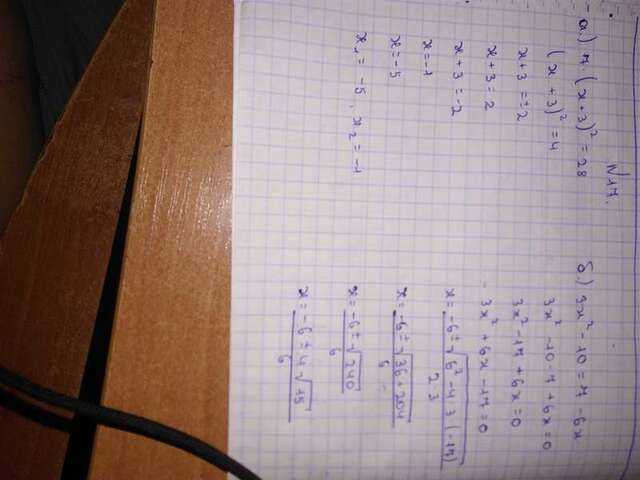 N 17.
а) 7 (x+3)² = 28
(x+3)² = 4
x+3 = ±2
x+3 = 2
x+3 = -2
x = -1
x = -5
x₁ = -5, x₂ = -1
б) 3x² - 10 = 7 - 6x
3x² - 10 - 7 + 6x = 0
3x² - 17 + 6x = 0
3x² + 6x - 17 = 0
x = -6 ± √6² - 4·3·(-17) / 2·3
x = -6 ± √36 + 204 / 6
x = -6 ± √240 / 6
x = -6 ± 4√15 / 6